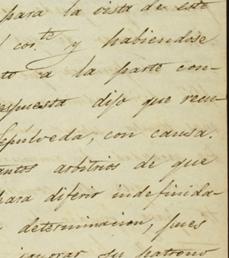 para la vista de este
cor.te y habiendose
to a la parte con-
espuesta dijo que reun
Sepúlveda, con causa.
antos arbitrios de que
para diferir indefinida-
determinacion, pues
ignorar su patrono